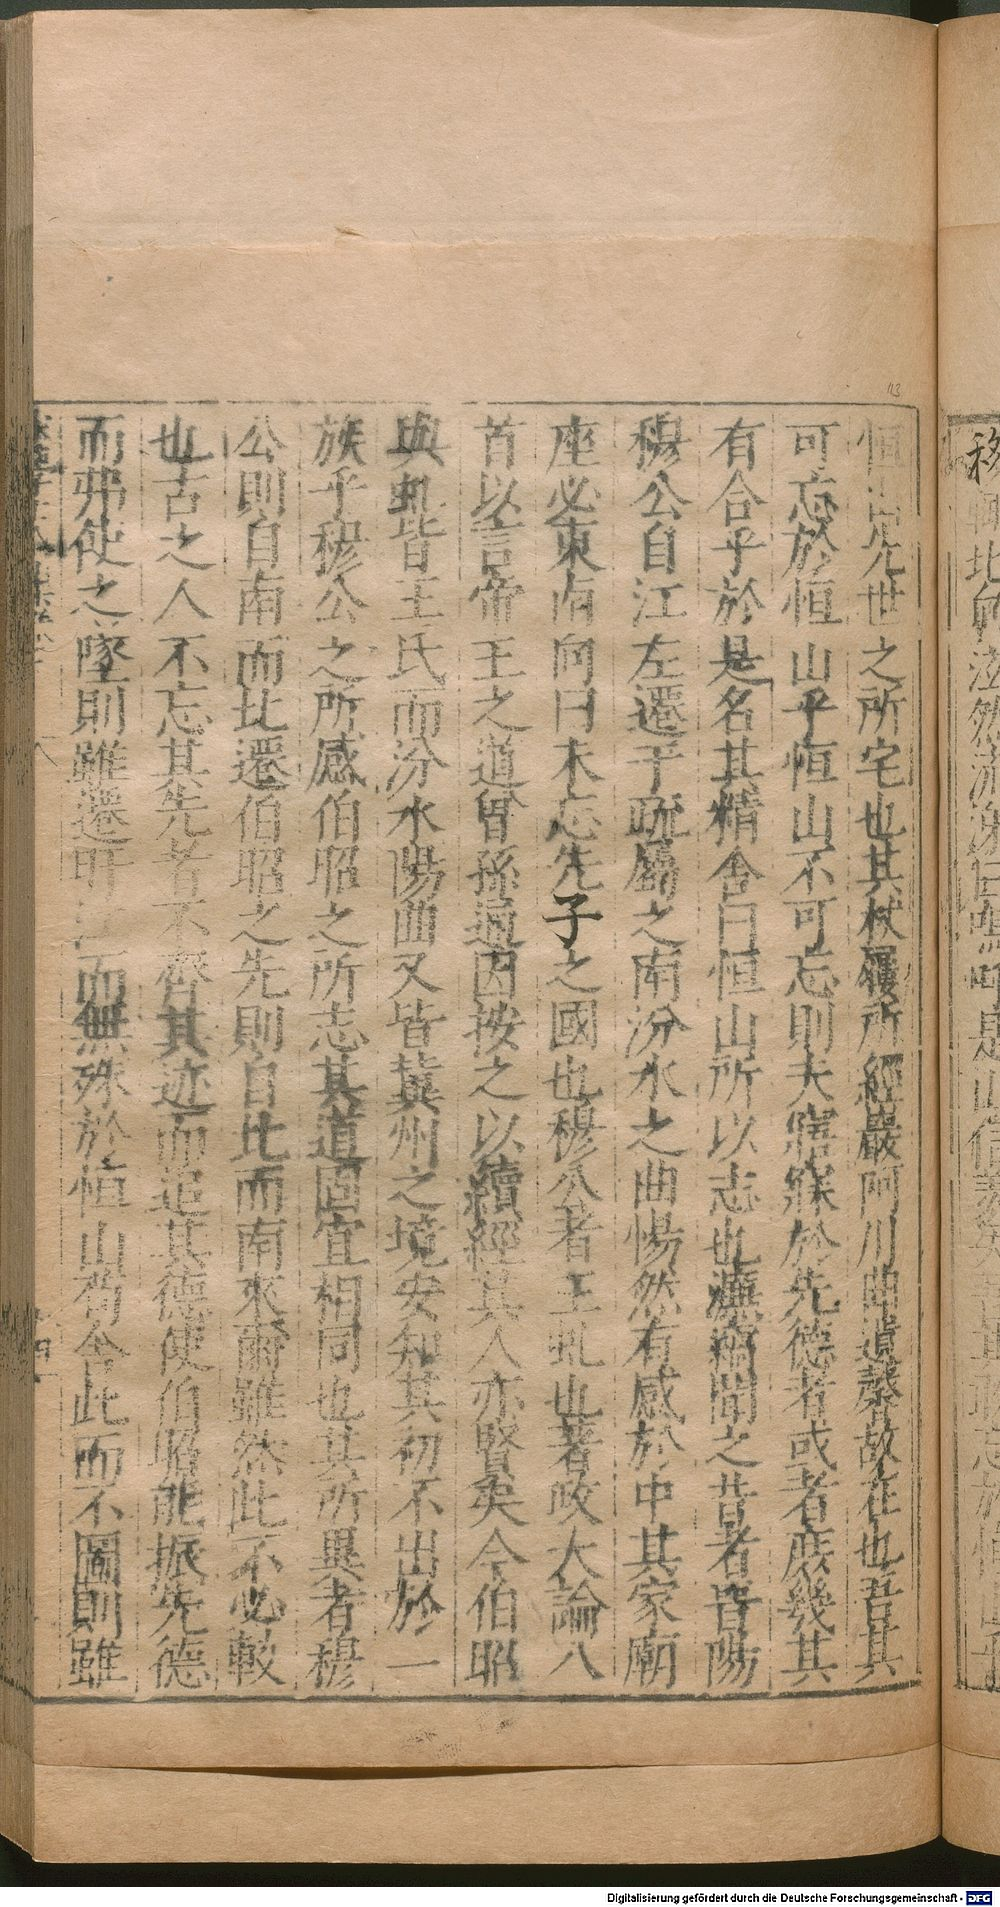 先世之所宅也其杖屨所經巖阿川曲遺馨故在也吾其
可忘於恒山乎恒山不可忘則夫寤寐於先德者或者庶幾其
有合乎於是名其精舍曰恒山所以志也濂竊聞之昔者晉陽
穆公自江左遷于之南汾水之曲惕然有感於中其家廟
座必東南向曰未忘先子之國也穆公者王虬也著政大論八
首以言帝王之道曾孫通因按之以續經其人亦賢矣今伯昭
與虬皆王氏而汾水陽曲又皆冀州之境安知其初不出於一
族乎穆公之所感伯昭之所志其道固宜相同也其所異者穆
公則自南而北還伯昭之先則自北而南來爾雖然此不必較
也古之人不忘其先者不啻其迹而追其德使伯昭能振先德
而弗使之墜則雖遷而無殊於恒山苟舍此而不圖則雖
Digitalisierung gefördert durch die Deutsche Forschungsgemeinschaft - DFG